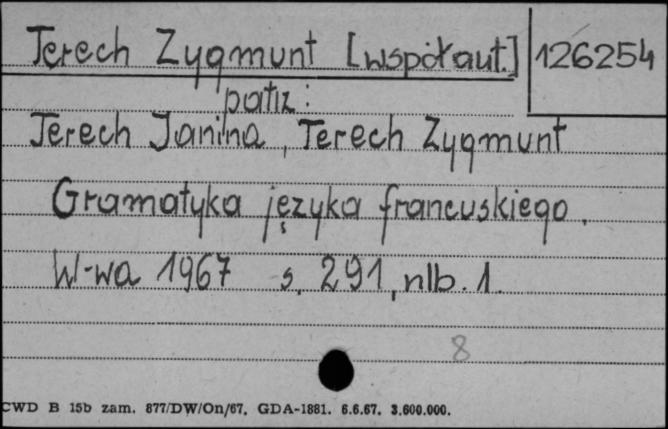 Terech Zygmunt [współaut.] 126254
patrz:
Terech Janina, Terech Zygmunt
Gramatyka języka francuskiego.
W-wa 1967 s. 291, nlb. 1.
8
CWD B 15b zam. 877/DW/On/67. GDA-1881. 6.6.67. 3.600.000.